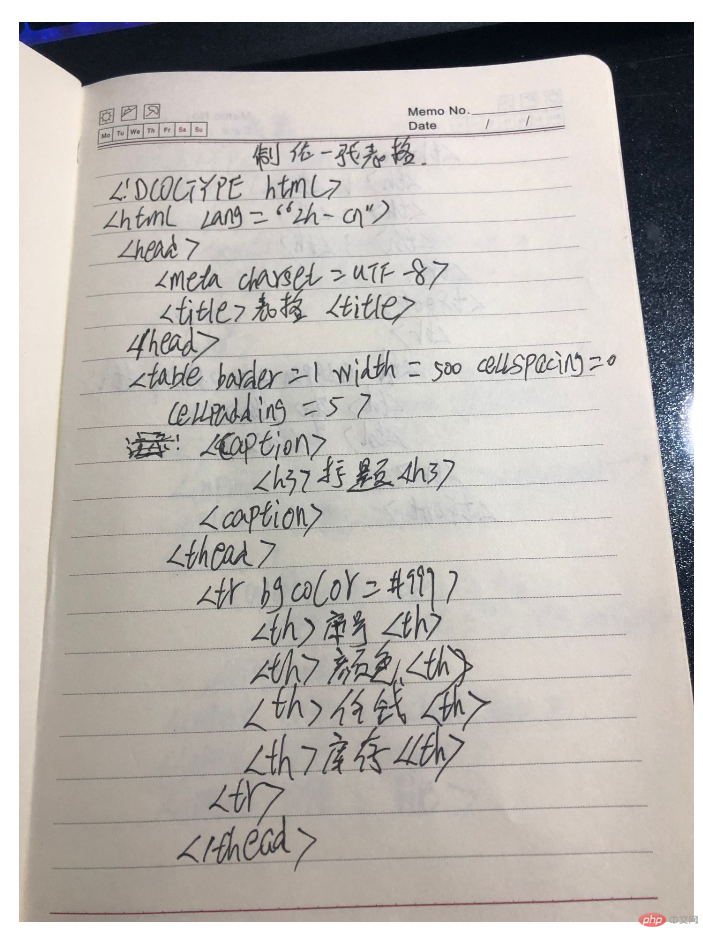 Memo No.
Mo Tu We Th Fr Sa Su
Date / /
制作一张表格.
<!DCOCTYPE html>
<html lang = “zh-cn”>
<head>
<meta charset = UTF-8>
<title> 表格 <title>
</head>
<table barder = 1 width = 500 cellspacing = 0
cellpadding = 5 >
<caption>
<h3> 标题 <h3>
<caption>
<thead>
<tr bgcolor = #999>
<th> 序号 <th>
<th> 颜色 <th>
<th> 价钱 <th>
<th> 库存 </th>
<tr>
</thead>
php中文网